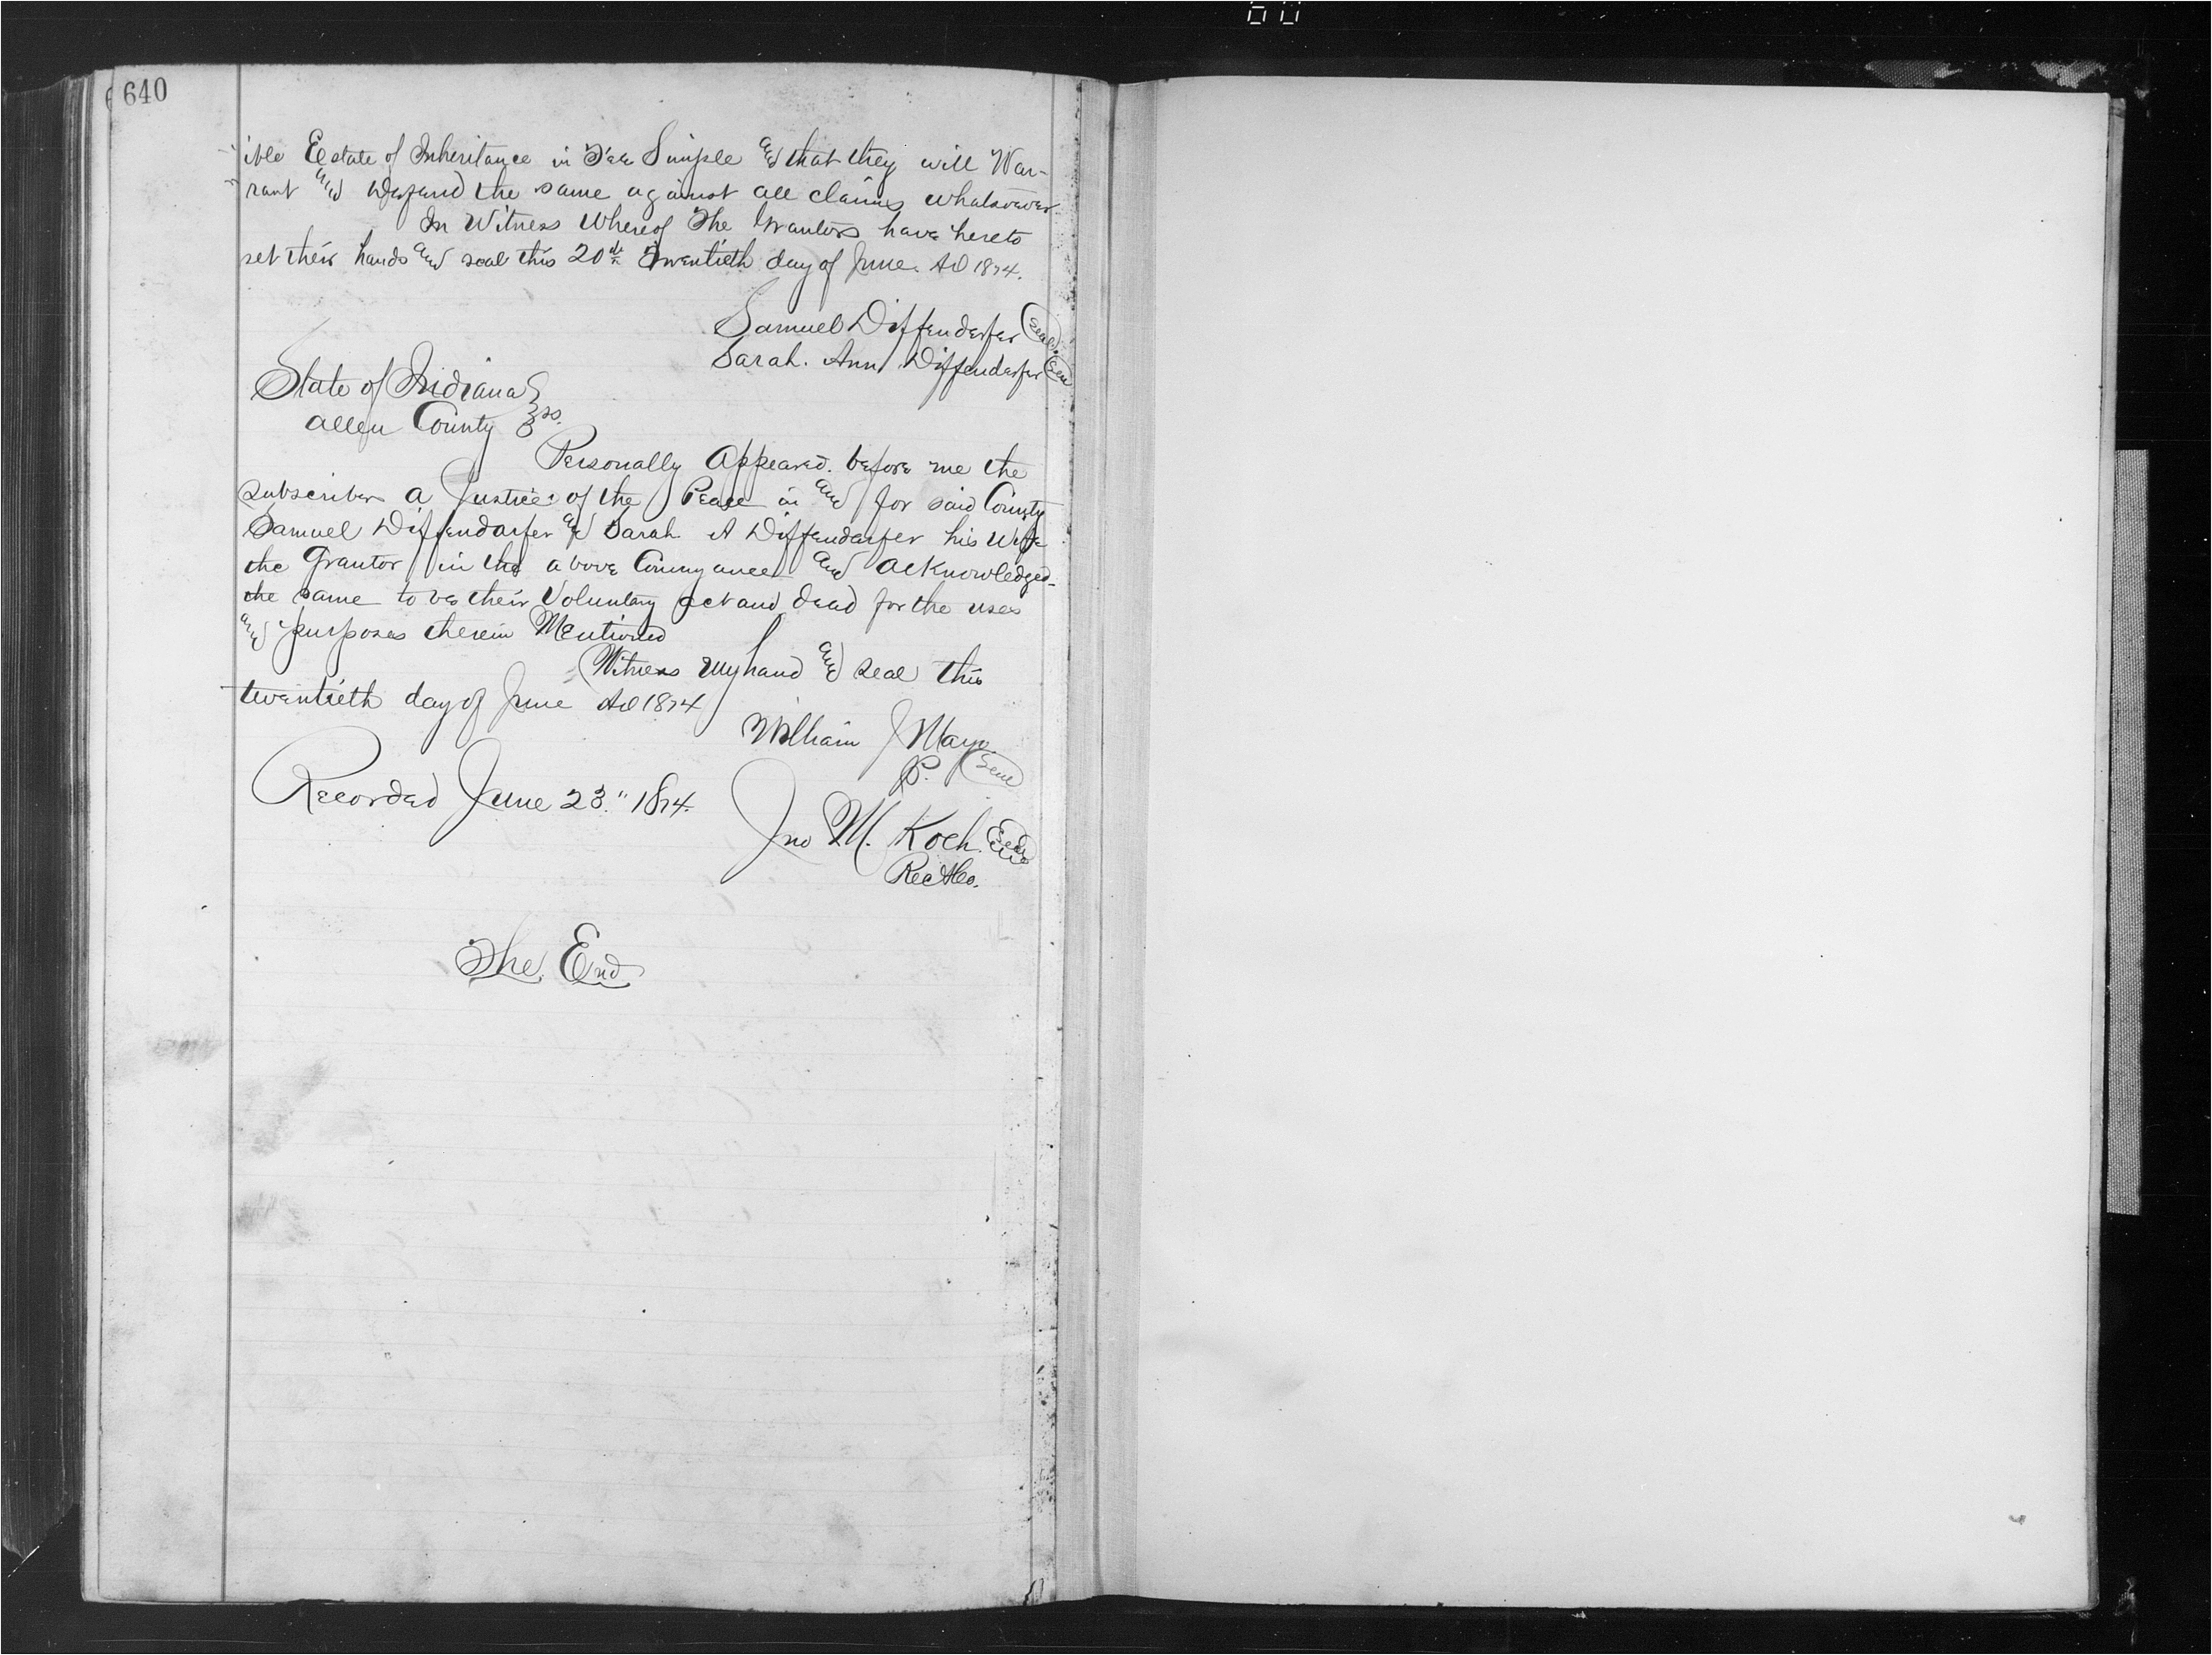 640
ible Eestate of Inheritance in Fee Simple and that they will War-
rant and Defend the same against all claims whatsoever
In Witness Whereof The Grantors have hereto
set their hands and seal this 20th Twentieth day of June. AD 1874.
Samuel Diffenderfer Seal
Sarah. Ann Diffenderfer Seal
State of Indiana
Allen County ss.
Personally Appeared. before me the
subscriber a Justice of the Peace in and for said County
Samuel Diffendarfer and Sarah A Diffendarfer his Wife
the Grantor in the above Conveyance and acknowledged
the same to be their Voluntary act and deed for the uses
and purposes therein Mentioned
Witness my hand and seal this
twentieth day of June AD 1874
William J Mayo
JP. Seal
Recorded June 23." 1874.
Jno M. Koch.
Rec ACo.
The End